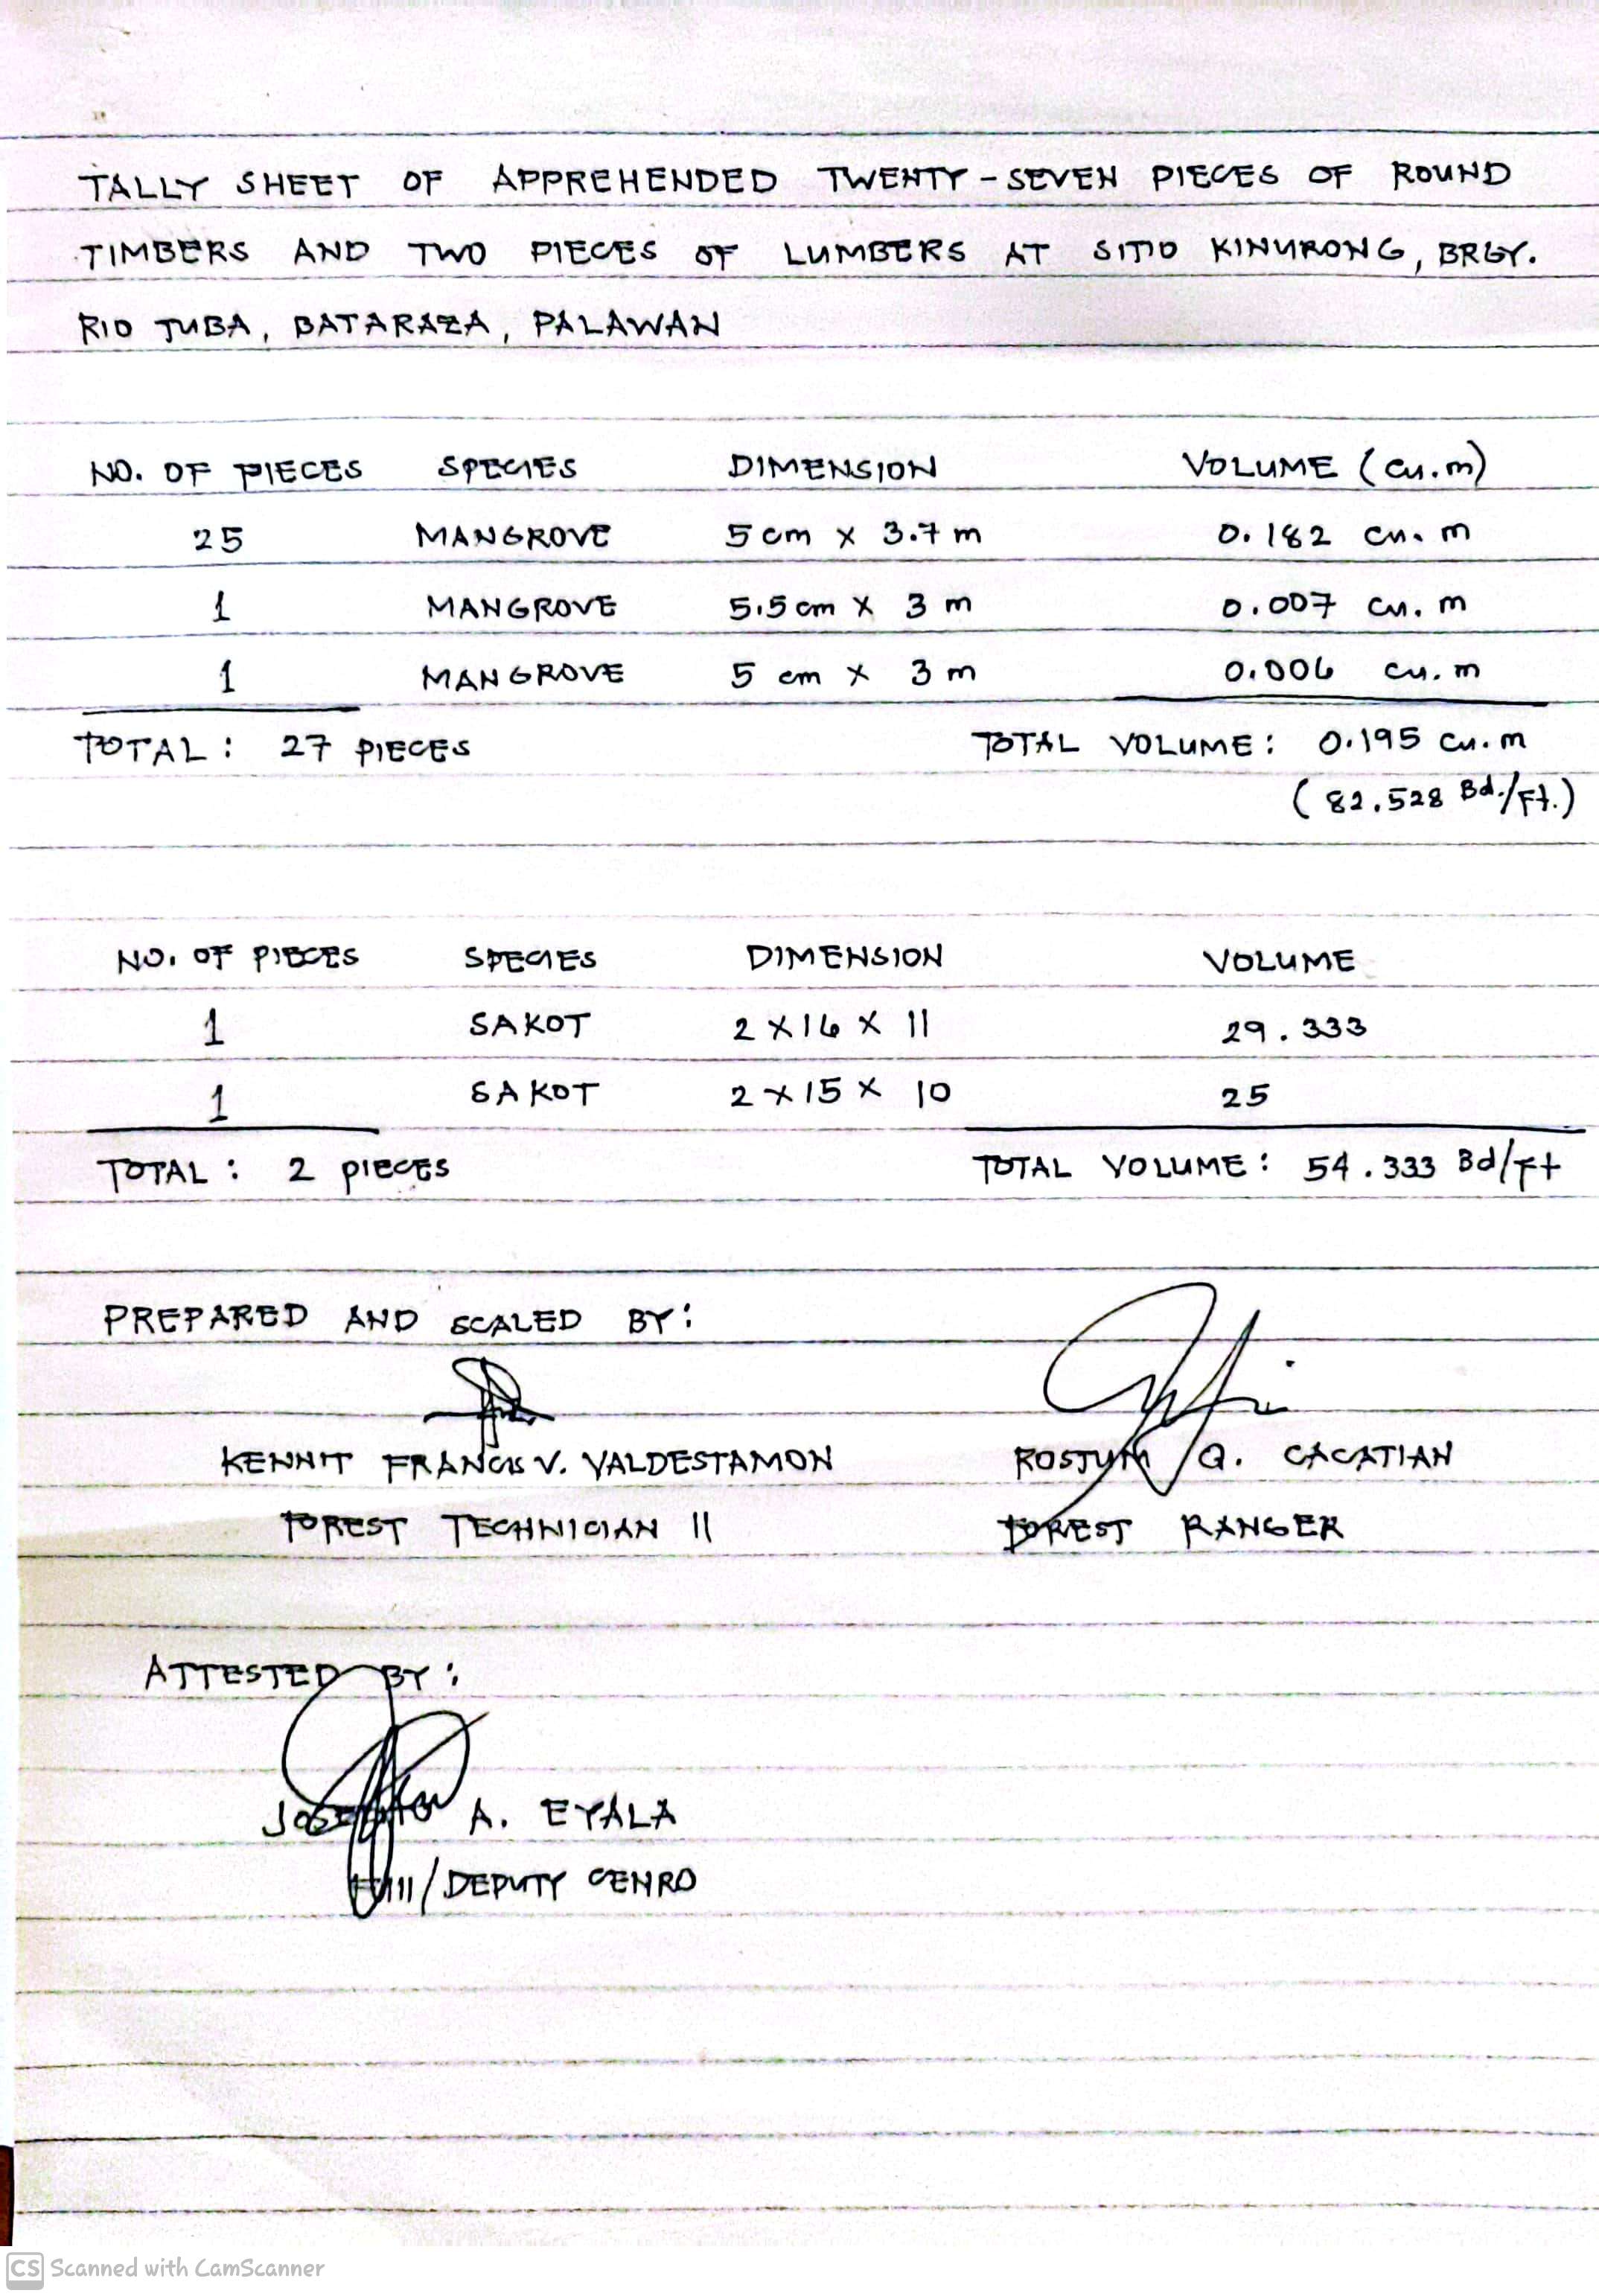 TALLY SHEET OF APPREHENDED TWENTY-SEVEN PIECES OF ROUND
TIMBERS AND TWO PIECES OF LUMBERS AT SITIO KINURONG, BRGY.
RIO TUBA, BATARAZA, PALAWAN
NO. OF PIECES SPECIES DIMENSION VOLUME (cu.m)
25 MANGROVE 5 cm x 3.7 m 0.182 cu. m
1 MANGROVE 5.5 cm x 3 m 0.007 cu. m
1 MANGROVE 5 cm x 3 m 0.006 cu. m
TOTAL: 27 PIECES TOTAL VOLUME: 0.195 cu. m
(82.528 Bd./Ft.)
NO. OF PIECES SPECIES DIMENSION VOLUME
1 SAKOT 2 x 16 x 11 29.333
1 SAKOT 2 x 15 x 10 25
TOTAL: 2 PIECES TOTAL VOLUME: 54.333 Bd/Ft
PREPARED AND SCALED BY:
KENNIT FRANCIS V. VALDESTAMON ROSTUM Q. CACATIAN
FOREST TECHNICIAN II FOREST RANGER
ATTESTED BY:
A. EYALA
/DEPUTY CENRO
CS Scanned with CamScanner